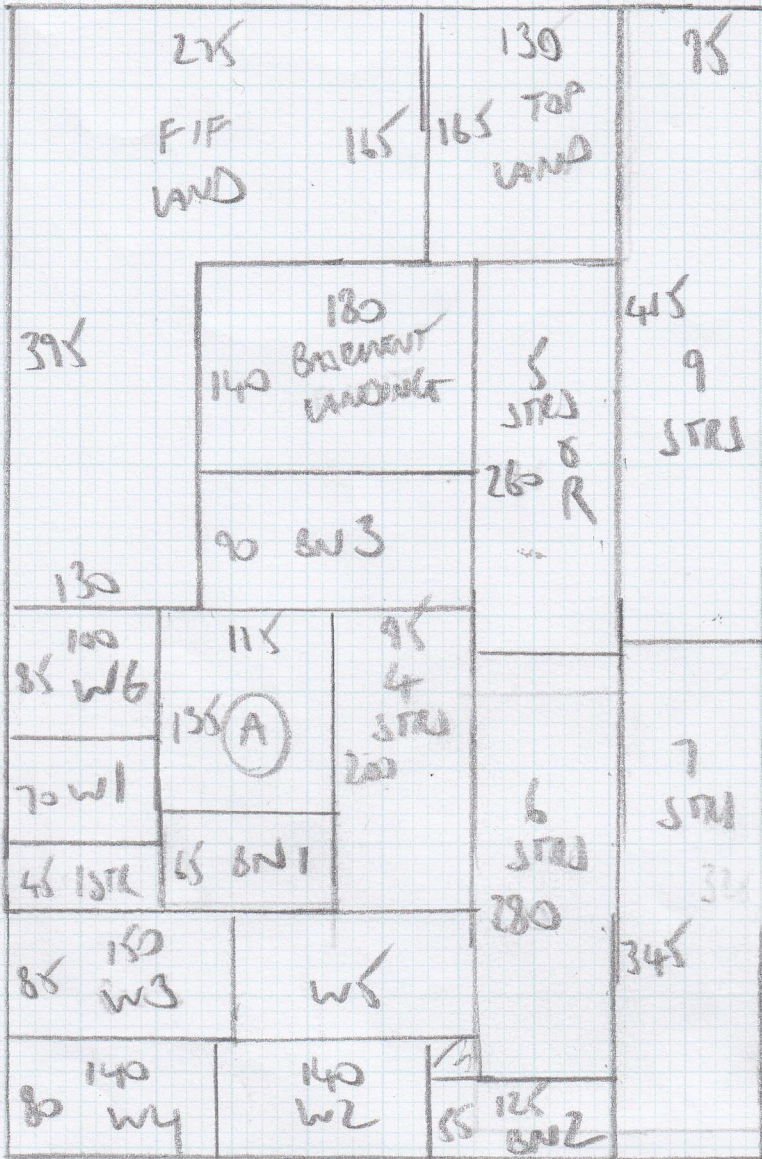 275
F/F
LAND
165
130
165 TOP
LAND
95
395
180
140 BASEMENT
LANDING
5
STRS
&
260 R
415
9
STRS
90 BN3
130
100
85 W6
115
135 A
95
4
STRS
200
70 W1
45 1STR
65 BN1
6
STRS
280
7
STRS
345
150
85 W3
W5
140
80 W4
140
W2
125
55 BN2